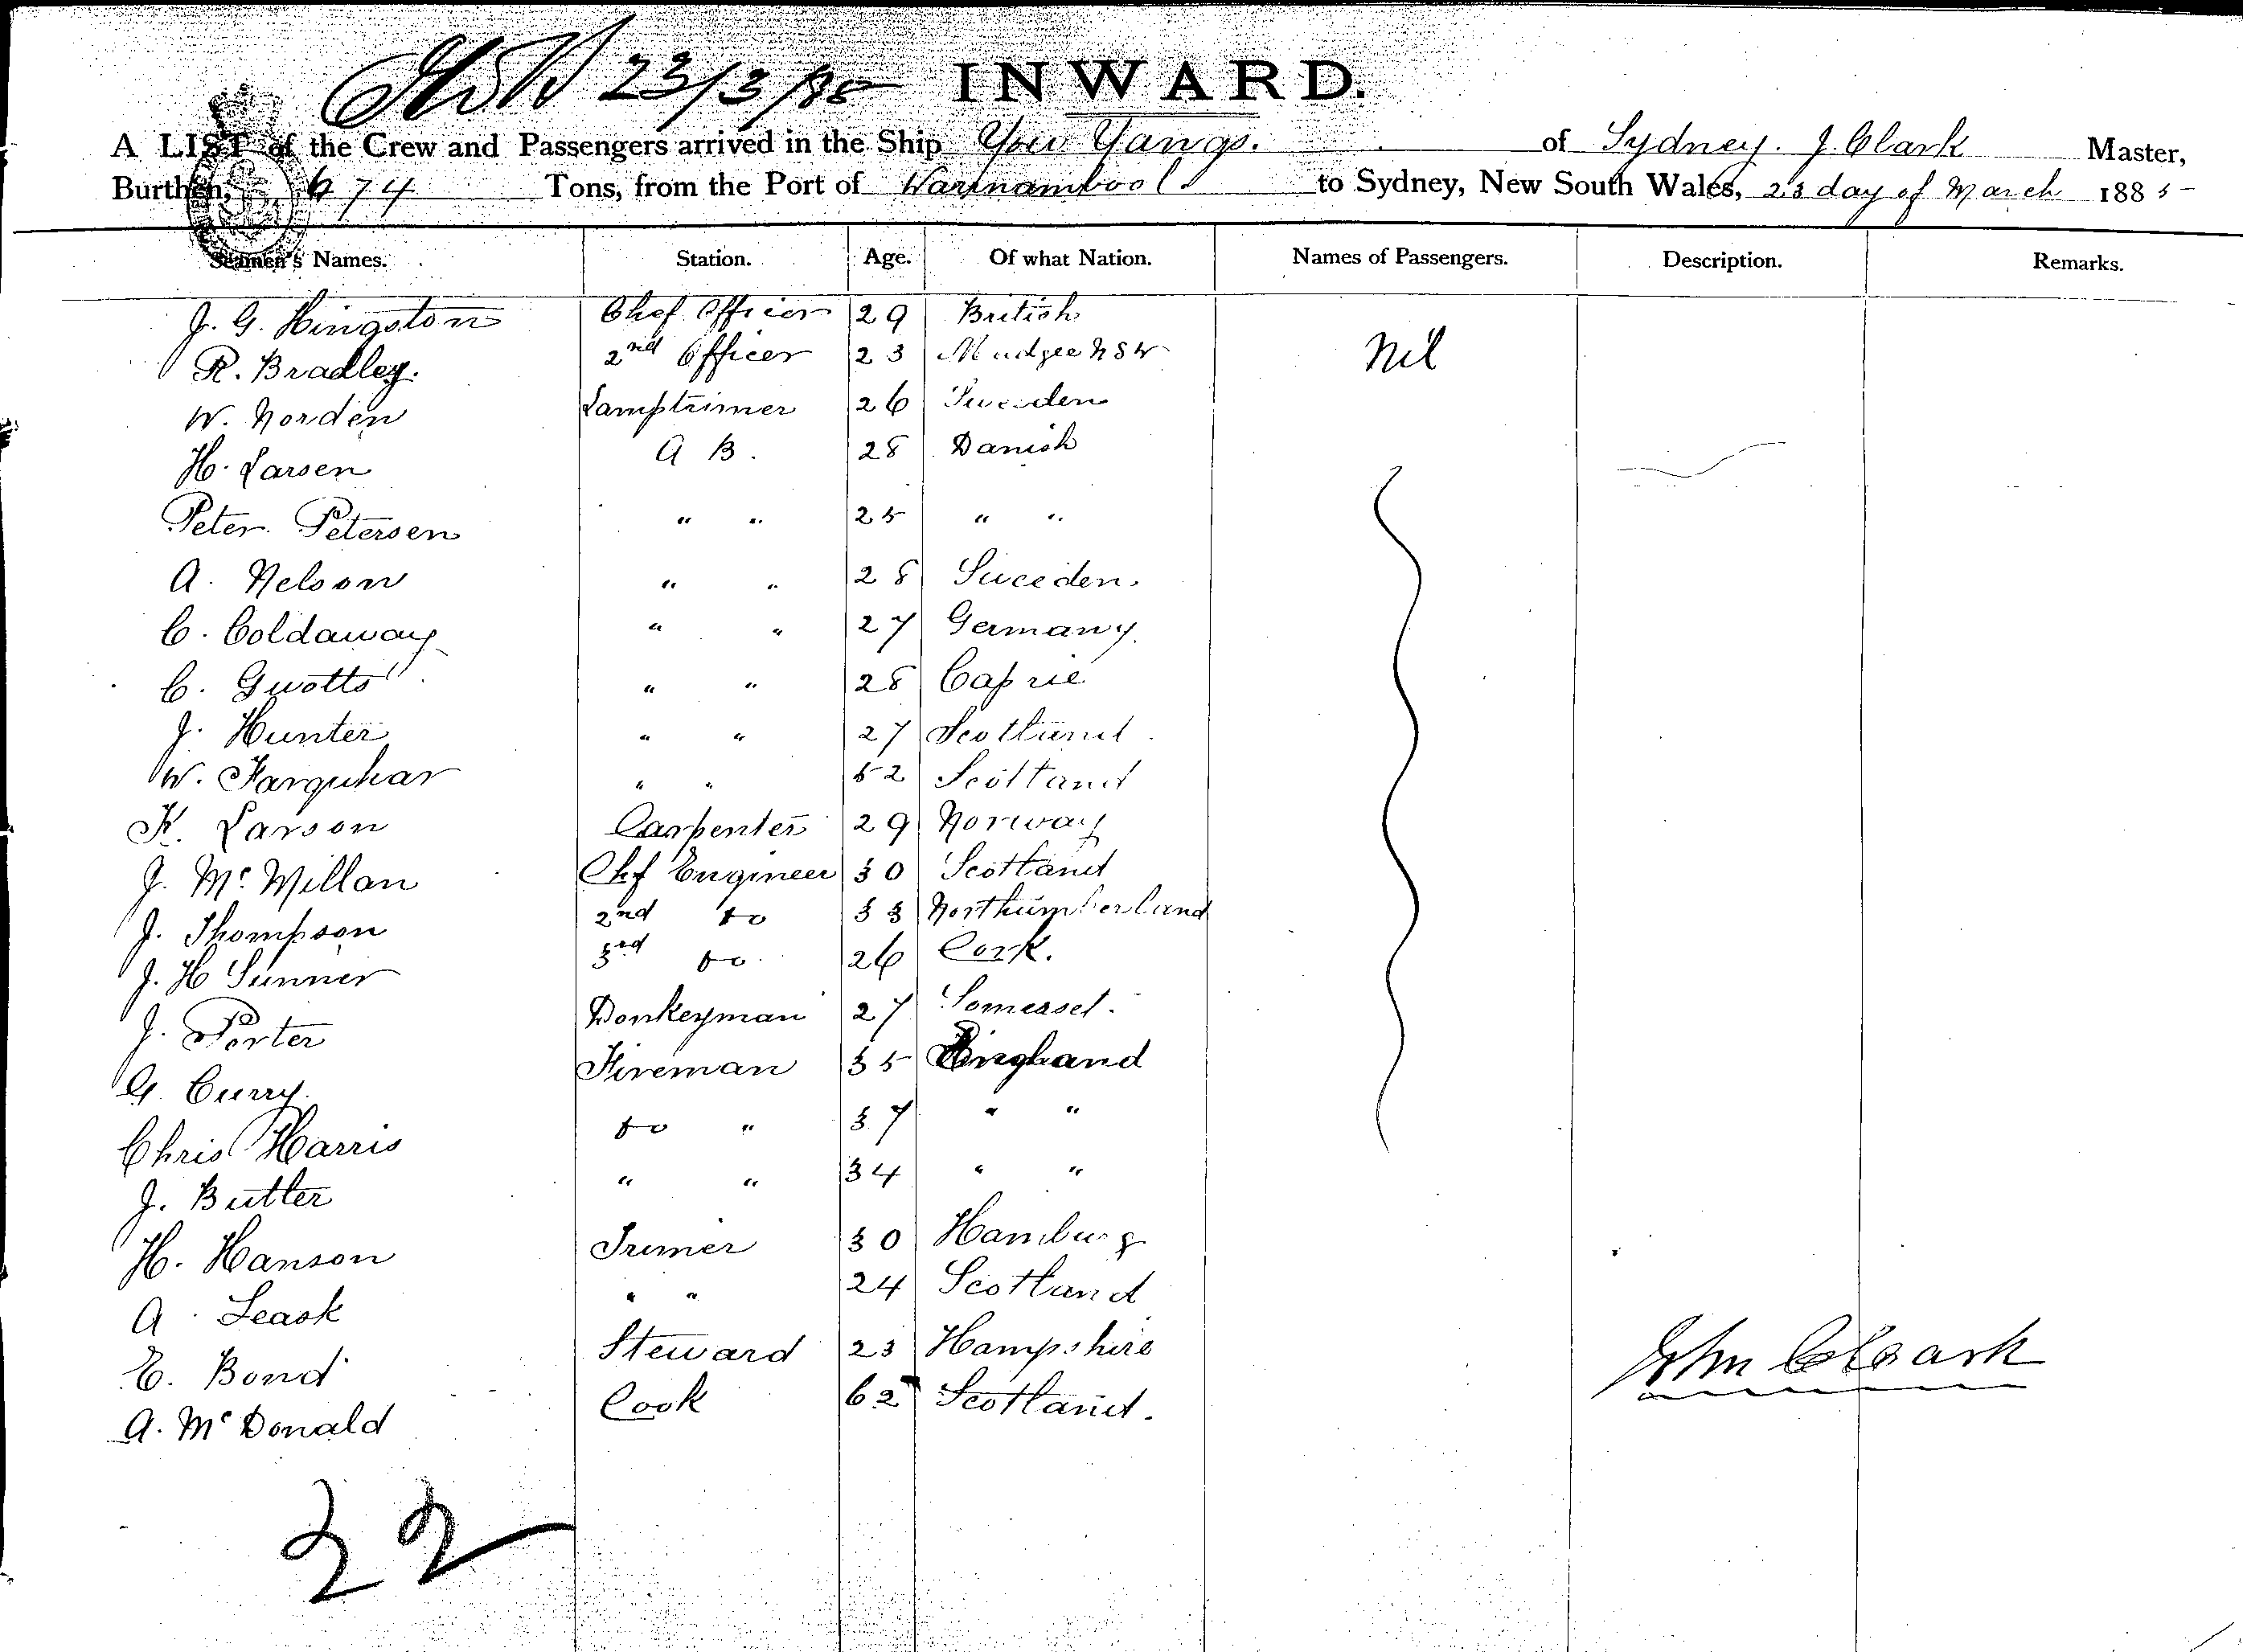 23/3/85 INWARD.
A LIST of the Crew and Passengers arrived in the Ship You Yangs. of Sydney. J. Clark Master,
Burthen, 674 Tons, from the Port of Warrnambool to Sydney, New South Wales, 23 day of March 1885
Seamen's Names. Station. Age. Of what Nation. Names of Passengers. Description. Remarks.
J. G. Hingston Chef Officer 29 British
R. Bradley. 2nd Officer 23 Mudgee NSW Nil
W. Norden Lamptrimer 26 Sweeden
H. Larsen A B. 28 Danish
Peter Petersen " " 25 " "
A. Nelson " " 28 Sweeden.
C. Coldaway " " 27 Germany.
C. Guotts " " 28 Caprie
J. Hunter " " 27 Scotland.
W. Farquhar " " 52 Scotland
K. Larson Carpenter 29 Norway
J. McMillan Chf Engineer 30 Scotland
J. Thompson 2nd do 33 Northumberland
J. H Sunner 3rd do. 26 Cork.
J. Porter Donkeyman 27 Somerset.
G. Curry. Fireman 35 England
Chris Harris do " 37 " "
J. Butler " " 34 " "
H. Hanson Trimer 30 Hamburg
A. Leask " " 24 Scotland
E. Bond Steward 23 Hampshire
A. McDonald Cook 62 Scotland.
John Clark
22